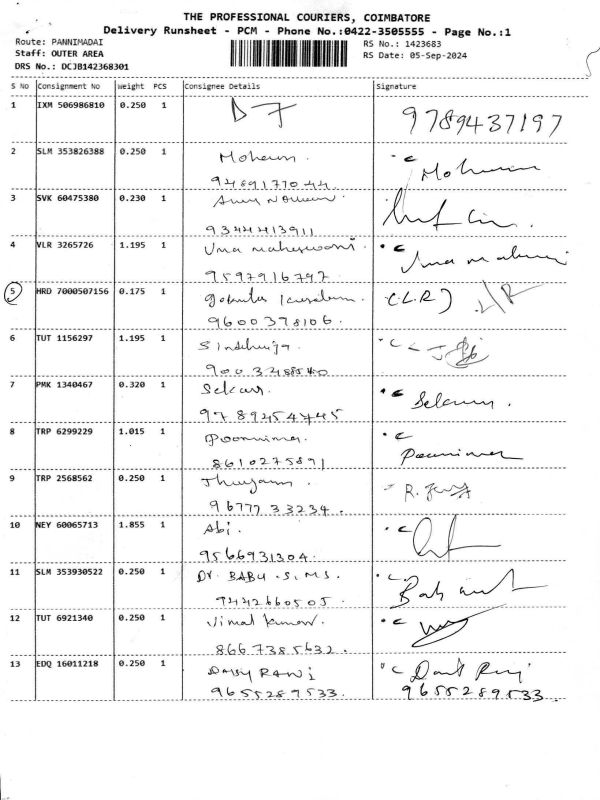 THE PROFESSIONAL COURIERS, COIMBATORE
Delivery Runsheet - PCM - Phone No.:0422-3505555 - Page No.:1
Route: PANNIMADAI
Staff: OUTER AREA
DRS No.: DCJB142368301
RS No.: 1423683
RS Date: 05-Sep-2024
S No Consignment No Weight PCS Consignee Details Signature
1 IXM 506986810 0.250 1 9789437197
2 SLM 353826388 0.250 1 Mohan.
9489177044
3 SVK 60475380 0.230 1
9344413911
4 VLR 3265726 1.195 1 Uma maheswari.
9597916747
5 HRD 7000507156 0.175 1 (L.R) L/R
9600378106.
6 TUT 1156297 1.195 1 Sindhuja
7 PMK 1340467 0.320 1 Sekar
9789454745
8 TRP 6299229 1.015 1 Poornima
8610275891
9 TRP 2568562 0.250 1
9677733234.
10 NEY 60065713 1.855 1 Abi.
9566931304.
11 SLM 353930522 0.250 1 Dr. BABU.S. M.S.
9442660505.
12 TUT 6921340 0.250 1 Vimal kumar.
8667385632.
13 EDQ 16011218 0.250 1 DAISY RANI
9655289533. 9655289533